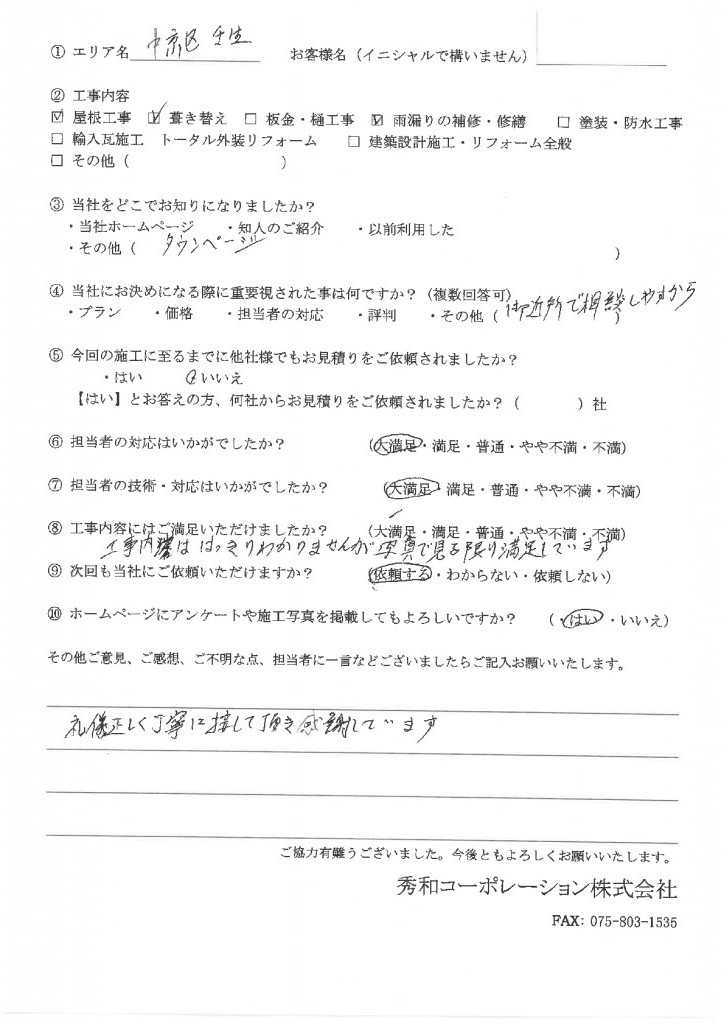 ① エリア名 中京区 壬生 お客様名（イニシャルで構いません）
② 工事内容
☑ 屋根工事 ☑ 葺き替え □ 板金・樋工事 ☑ 雨漏りの補修・修繕 □ 塗装・防水工事
□ 輸入瓦施工 トータル外装リフォーム □ 建築設計施工・リフォーム全般
□ その他（ ）
③ 当社をどこでお知りになりましたか？
・当社ホームページ ・知人のご紹介 ・以前利用した
・その他（ タウンページ ）
④ 当社にお決めになる際に重要視された事は何ですか？（複数回答可）
・プラン ・価格 ・担当者の対応 ・評判 ・その他（ 御近所で相談しやすから ）
⑤ 今回の施工に至るまでに他社様でもお見積りをご依頼されましたか？
・はい ・いいえ
【はい】とお答えの方、何社からお見積りをご依頼されましたか？（ ）社
⑥ 担当者の対応はいかがでしたか？ （大満足・満足・普通・やや不満・不満）
⑦ 担当者の技術・対応はいかがでしたか？ （大満足・満足・普通・やや不満・不満）
⑧ 工事内容にはご満足いただけましたか？ （大満足・満足・普通・やや不満・不満）
工事内容ははっきりわかりませんが写真で見る限り満足しています
⑨ 次回も当社にご依頼いただけますか？ （依頼する・わからない・依頼しない）
⑩ ホームページにアンケートや施工写真を掲載してもよろしいですか？ （・はい・いいえ）
その他ご意見、ご感想、ご不明な点、担当者に一言などございましたらご記入お願いいたします。
礼儀正しく丁寧に接して頂き感謝しています
ご協力有難うございました。今後ともよろしくお願いいたします。
秀和コーポレーション株式会社
FAX: 075-803-1535